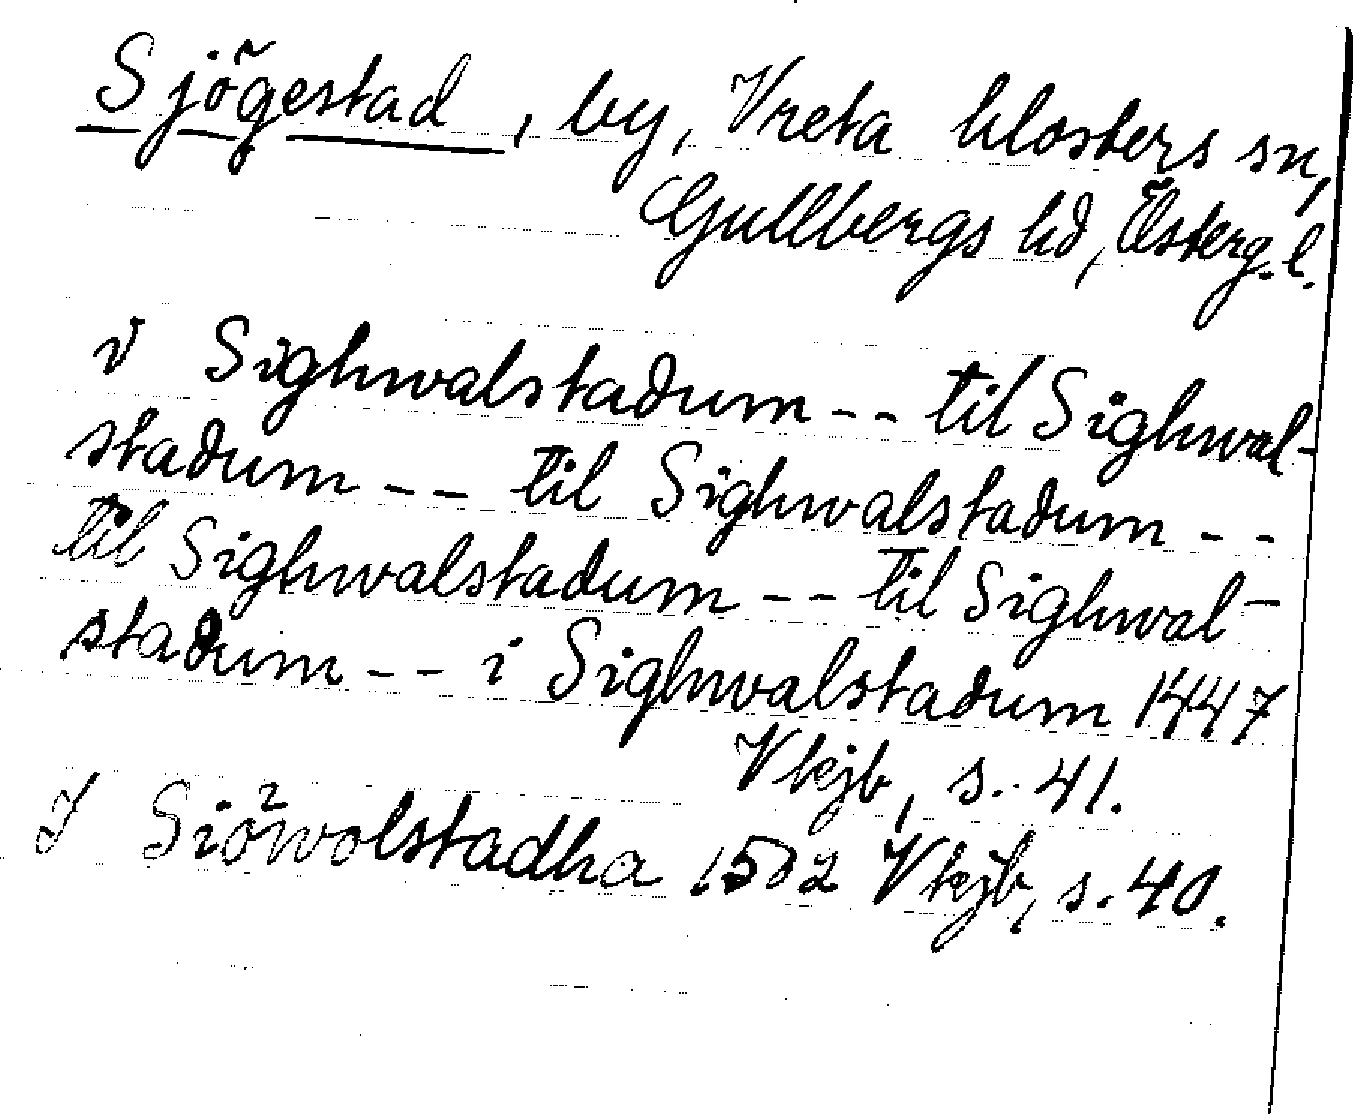 Sjögestad, by, Vreta klosters sn,
Gullbergs hd, Österg. l.
v Sighwalstadum -- til Sighwal-
stadum -- til Sighwalstadum --
til Sighwalstadum -- til Sighwal-
stadum -- i Sighwalstadum 1447
Vkjb, s. 41.
I Siöwolstadha 1502 Vkjb, s. 40.